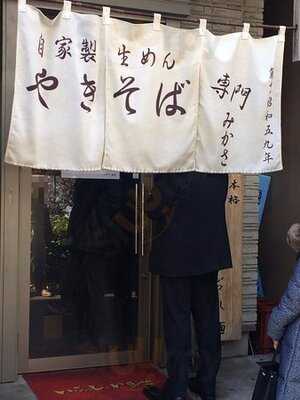 自家製
やき
生めん
そば
専門
みかさ
昭和五九年
本格